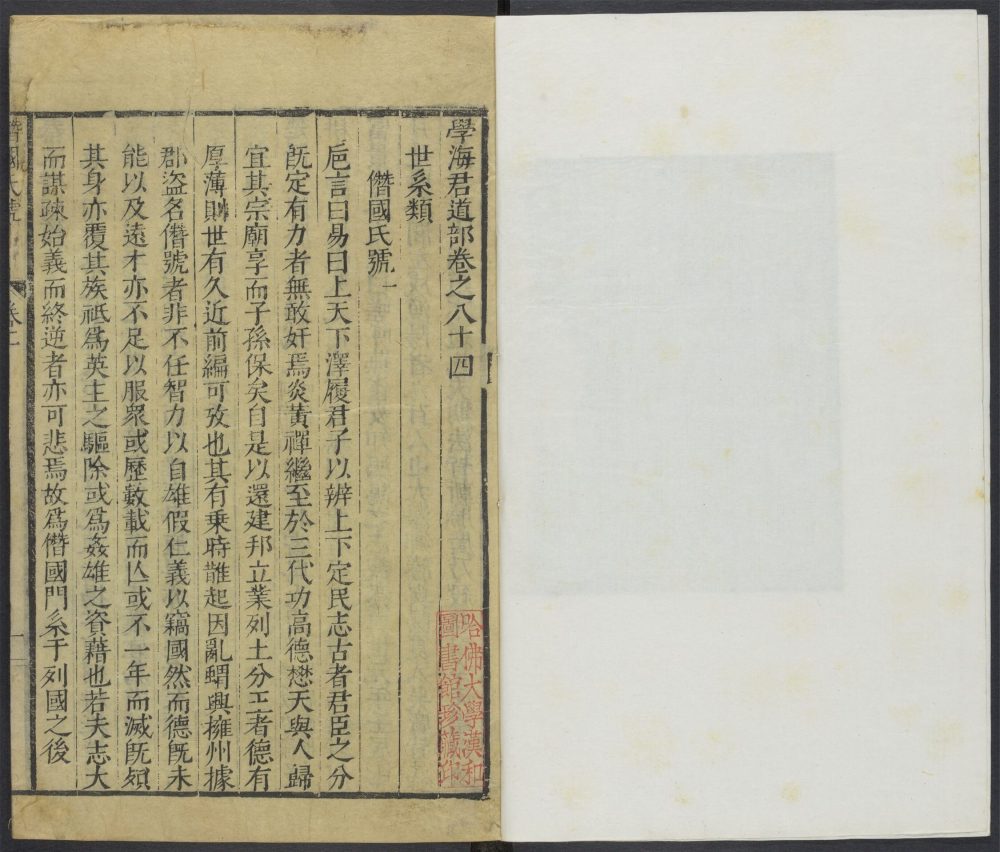 學海君道部卷之八十四
世系類
僭國氏號一
巵言曰易曰上天下澤履君子以辨上下定民志古者君臣之分
旣定有力者無敢奸焉炎黃禪繼至於三代功高德懋天與人歸
宜其宗廟享而子孫保矣自是以還建邦立業列土分王者德有
厚薄則世有久近前編可攷也其有乗時雔起因亂蝟興擁州據
郡盜名僭號者非不任智力以自雄假仁義以竊國然而德旣未
能以及遠才亦不足以服衆或歷數載而亾或不一年而滅旣殞
其身亦覆其族祇爲英主之驅除或爲姦雄之資藉也若夫志大
而謀疎始義而終逆者亦可悲焉故爲僭國門系于列國之後
僭國氏號
卷十一
一
哈佛大學漢和
圖書館珍藏印